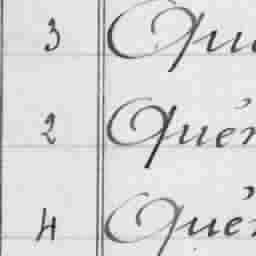 3 Qué
2 Quér
4 Quér